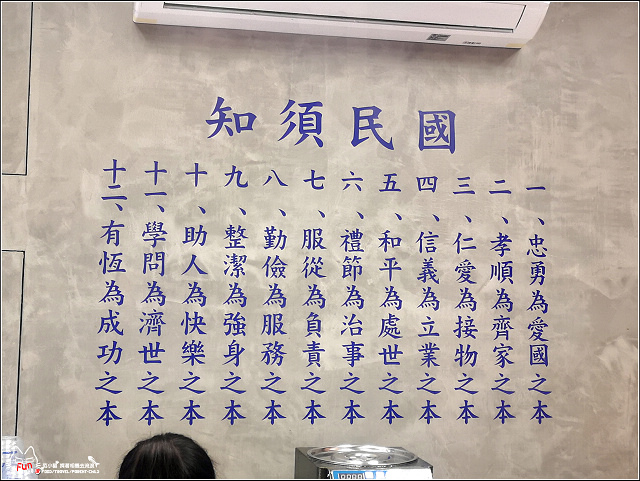 國民須知
一、忠勇為愛國之本
二、孝順為齊家之本
三、仁愛為接物之本
四、信義為立業之本
五、和平為處世之本
六、禮節為治事之本
七、服從為負責之本
八、勤儉為服務之本
九、整潔為強身之本
十、助人為快樂之本
十一、學問為濟世之本
十二、有恆為成功之本
Fun
FOOD/TRAVEL/PARENT-CHILD